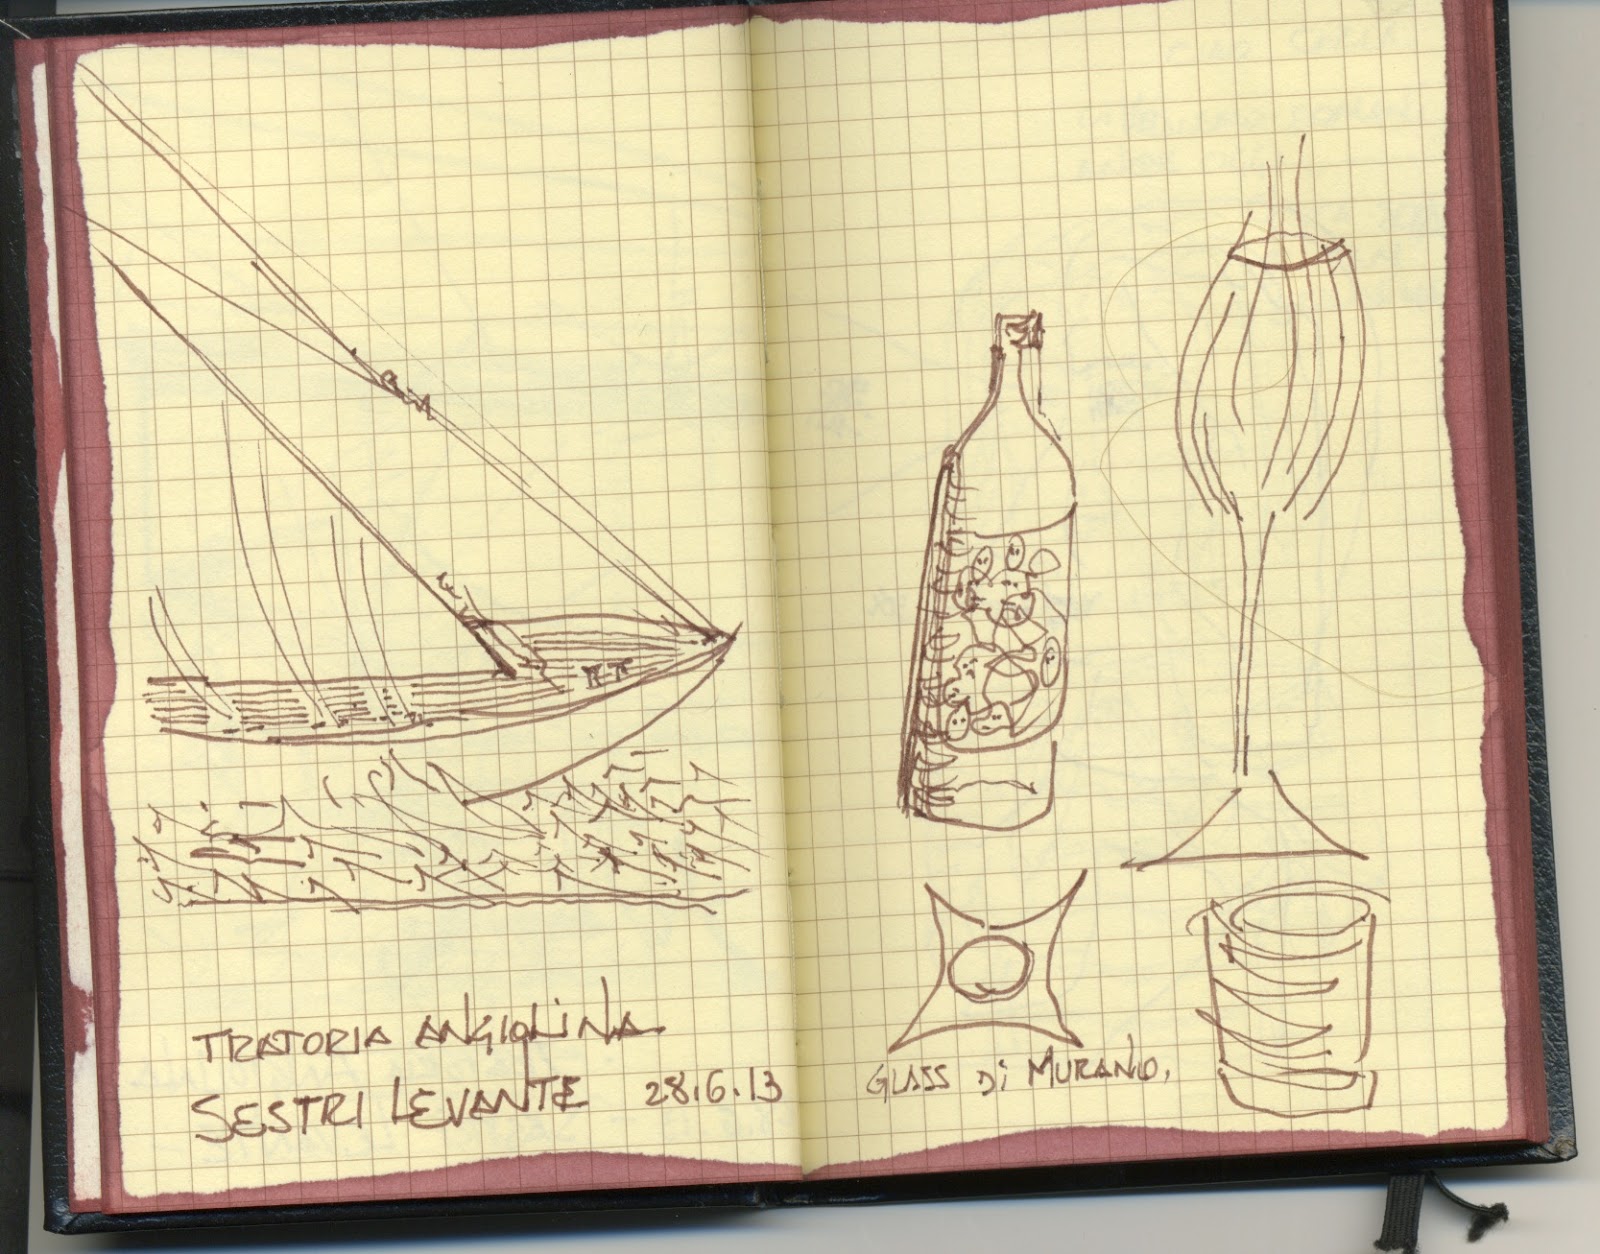 TRATORIA ANGIOLINA
SESTRI LEVANTE 28.6.13
GLASS Di MURANO,